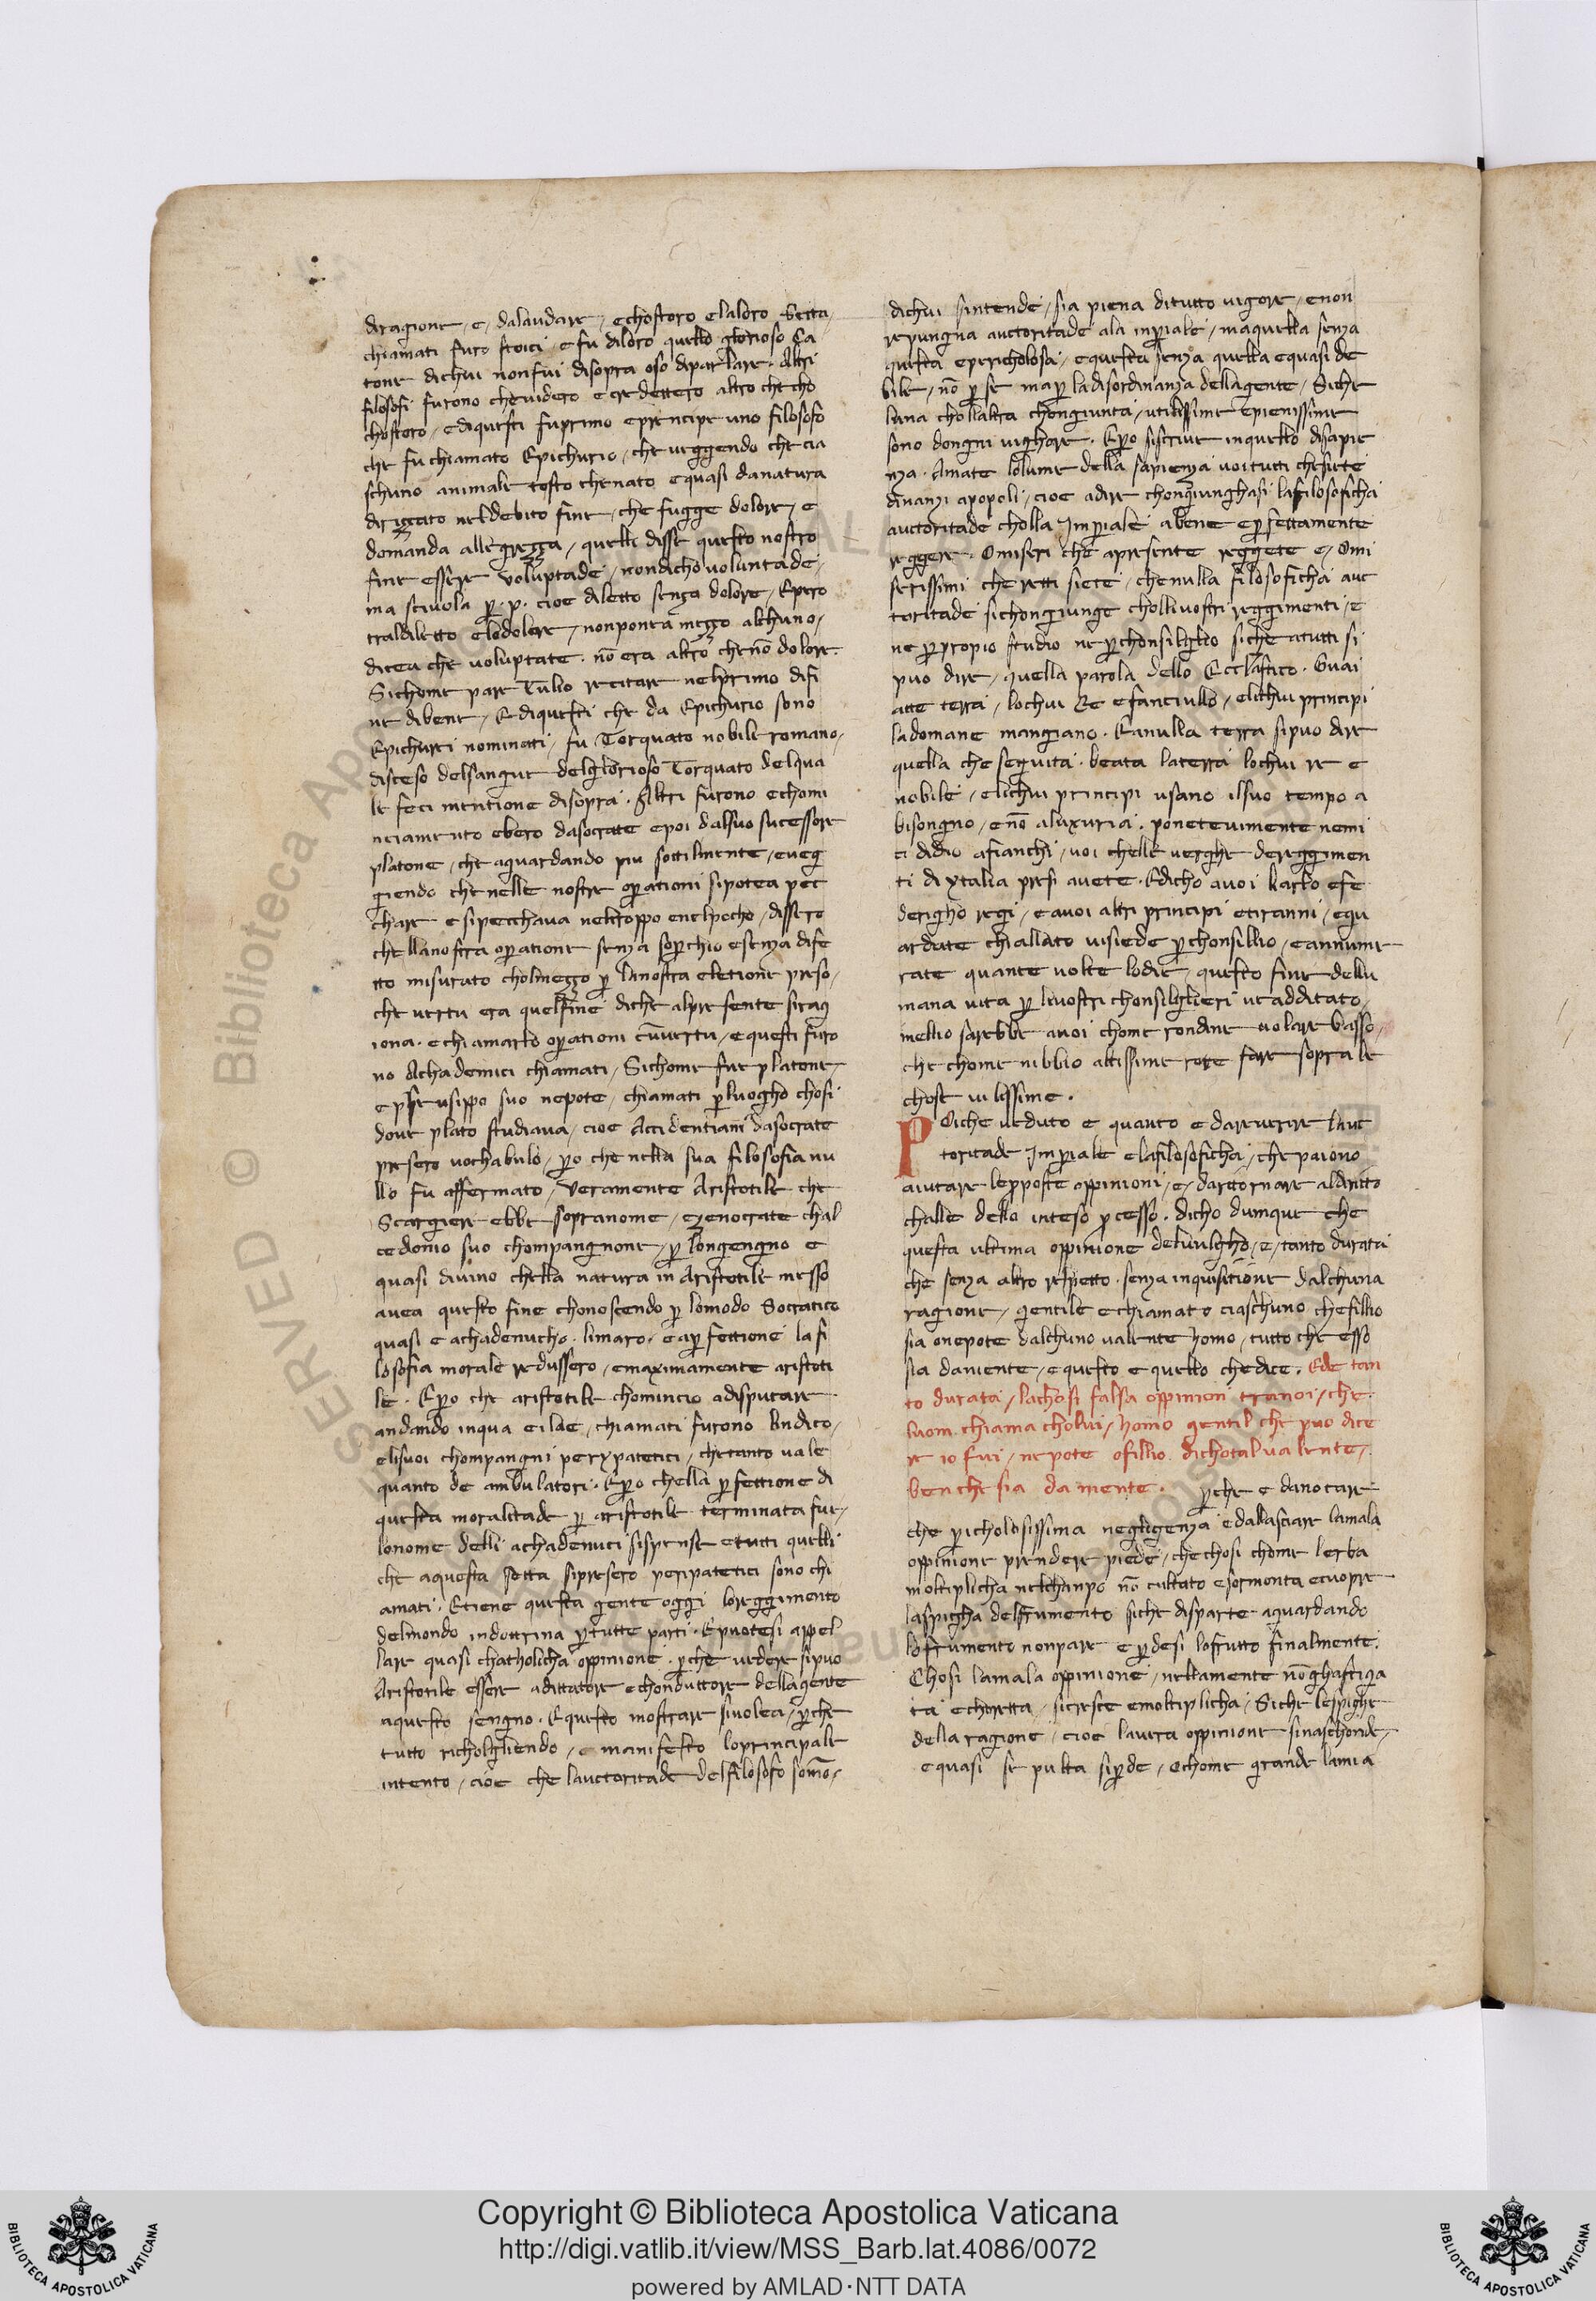 di ragione, e, dalaudare, echostoro elaloro Setta,
chiamati furo stoici, e fu diloro quello glorioso Ca
tone dichui nonfui disopra oso diparlare. Altri
filosofi furono chevidero e credettero altro che cho
chostoro, ediquesti fuprimo e prencipe uno filosofo
che fu chiamato Epichurio, che veggendo che cia
schuno animale tosto chenato equasi danatura
dirizzato neldebito fine, che fugge dolore, e
domanda allegrezza, quelli disse questo nostro
fine essere voluptade, nondicho voluntade,
ma scrivola p̱. p. cioe diletto senza dolore, Epero
traldiletto elodolore, nonponea mezzo alchuno,
dicea che voluptate. nō era altro chenō dolore.
Sichome pare Tulio recitare nelprimo difi
ne dibene, Ediquesti che da Epichurio sono
Epichurei nominati, fu Torquato nobile romano,
disceso delsangue delglorioso Torquato delqua
le feci mentione disopra. Altri furono echomi
nciamento ebero dasocrate epoi dalsuo sucessore
platone, che aguardando piu sottilmente, eveg
giendo chenelle nostre op̱ationi sipotea pec
chare esipecchava neltroppo enelpocho, dissero
chellanostra op̱atione senza sop̱chio esenza dife
tto misurato cholmezzo p̱ lanostra eletione preso,
che vertu era quelfine diche alpresente sirag
iona. echiamarlo op̱ationi cūvertu, equesti furo
no Achademici chiamati, Sichome fue platone,
epseusippo suo nepote, chiamati p̱luogho chosi
dove plato studiava, cioe Accidentiani dasocrate
presero vochabulo, p̱o chenella sua filosofia nu
llo fu affermato, Veramente Aristotile che
Scargiere ebbe sopranome, ezenocrate chal
cedonio suo chompangnone, p̱ longengno e
quasi divino chella natura in Aristotile messo
avea questo fine chonoscendo p̱ lomodo Socratico
quasi e achademicho. limaro. eap̱fettione la fi
losofia morale redussero, emaximamente aristoti
le. Ep̱o che aristotile chomincio adisputare
andando inqua eilae, chiamati furono lindico,
elisuoi chompangni perypatetici, chetanto vale
quanto de ambulatori. Ep̱o chella p̱fettione di
questa moralitade p̱ aristotile terminata fue,
lonome delli achademici sispense etutti quelli
che aquesta setta sipresero peripatetici sono chi
amati. Etiene questa gente oggi loreggimento
delmondo indottrina p̱tutte parti. Epuotesi appel
lare quasi chatholicha oppinione. p̱che vedere sipuo
Aristotile essere adittatore echonduttore dellagente
aquesto sengno. Equesto mostrare sivolea, p̱che
tutto richolgliendo, e manifesto loprincipale
intento, cioe che lauctoritade delfilosofo somō,
dichui sintende, sia piena ditutto vigore, enon
repungna auctoritade ala imp̱iale, maquella senza
questa epericholosa, equesta senza quella equasi de
bile, nō p̱ se map̱ ladisordinanza dellagente, Siche
luna chollaltra chongiunta, utilissime epienissime
sono dongni vighore. Ep̱o siscrive inquello disapie
nza. Amate lolume della sapienza voi tutti chesiete
dinanzi apopoli, cioe adire chongiunghasi lafilosoficha
auctoritade cholla Imp̱iale abene ep̱fettamente
reggere. Omiseri che apresente reggete e, Omi
serissimi che retti siete, chenulla filosoficha auc
toritade sichongiunge chollivostri reggimenti, e
ne p̱propio studio ne p̱chonsilglio siche atutti si
puo dire, quella parola dello Ecclastico. Guai
atte terra, lochui Re efanciullo, elichui principi
ladomane mangiano. Eanulla terra sipuo dire
quella che seguita. beata laterra lochui re e
nobile, elichui principi usano ilsuo tempo a
bisongno, enō aluxuria. ponetevimente nemi
ci didio afianchi, voi chelle verghe dereggimen
ti di ytalia presi avete. Edicho avoi karlo efe
derigho regi, eavoi altri principi etiranni, egu
ardate chiallato visiede p̱chonsillio, eannume
rate quante volte lodie, questo fine dellu
mana vita p̱ livostri chonsilglieri veadditato,
mellio sarebbe avoi chome rondine volare basso,
che chome nibbio altissime rote fare sopra le
chose vilissime.
POiche veduto e quanto e dareverire lauc
toritade Imp̱iale elafilosoficha, che paiono
aiutare leproposte oppinioni, e, daritornare aldiritto
challe dello inteso p̱cesso. Dicho dumque che
questa ultima oppinione delvulgho, e, tanto durata
che senza altro respetto. senza inquisitione dalchuna
ragione, gentile echiamato ciaschuno chefillio
sia onepote dalchuno valente homo, tutto che esso
sia daniente, equesto e quello chedice. Ede tan
to durata, lachosi falsa oppinion tranoi, che.
luom chiama cholui, homo gentil che puo dice
re io fui, nepote ofillio dichotal valente,
benche sia da niente. p̱che e danotare
che p̱icholosissima negligenza edallasciare lamala
oppinione prendere piede, che chosi chome lerba
moltiplicha nelchanpo nō cultato esormonta ecuopre
laspigha delfrumento siche disparte aguardando
lofrumento nonpare ep̱desi lofrutto finalmente.
Chosi lamala oppinione, nellamente nōghastiga
ta echoretta, sicresce emoltiplicha, Siche lespighe
della ragione, cioe lavera oppinione sinaschonde,
equasi se pulta sip̱de, Ochome grande lamia